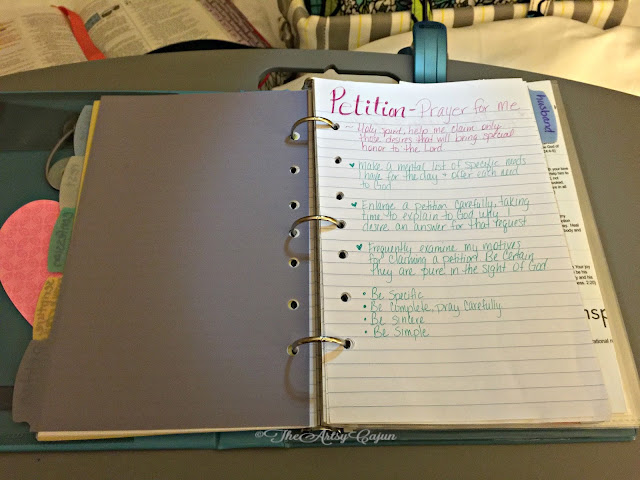 Petition - Prayer for me
~ Holy Spirit, help me claim only
those desires that will bring special
honor to the Lord.
Make a mental list of specific needs
I have for the day & offer each need
to God.
Enlarge a petition carefully, taking
time to explain to God why I
desire an answer for that request
Frequently examine my motives
for claiming a petition. Be certain
they are pure in the sight of God.
• Be Specific
• Be complete, pray carefully
• Be sincere
• Be Simple
husband
©TheArtsyCajun